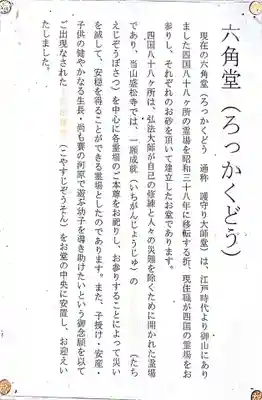 六角堂(ろっかくどう)
現在の六角堂(ろっかくどう 通称 護守り大師堂)は、江戸時代より御山にあり
ました四国八十八ヶ所の霊場を昭和三十八年に移転する折、現住職が四国の霊場をお
参りし。それぞれのお砂を頂いて建立したお堂であります。
四国八十八ヶ所は、弘法大師が自己の修練と人々の災難を除くために開かれた霊場
であり、当山盛松寺では、一願成就(いちがんじょうじゅ)の (たち
えじぞうぼさつ)を中心に各霊場のご本尊をお祀りし、お参りすることによって災い
を滅して、安穏を得ることができる霊場としたのであります。また、子授け・安産・
子供の健やかなる生長・尚も賽の河原で遊ぶ幼子を導き助けたいという御念願を以て
ご出現なされた (こやすじぞうそん)をお堂の中央に安置し、お迎えい
たしました。